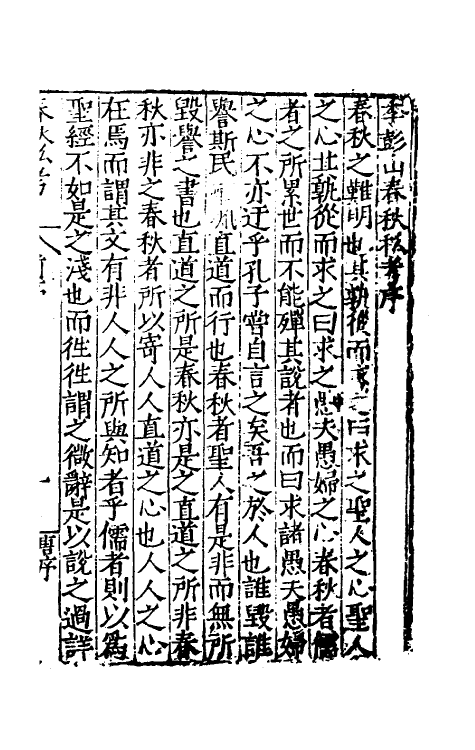 季彭山春秋私考序
春秋之難明也其孰從而求之曰求之聖人之心聖人
之心其孰從而求之曰求之愚夫愚婦之心春秋者儒
者之所累世而不能殫其說者也而曰求諸愚夫愚婦
之心不亦迂乎孔子嘗自言之矣吾之於人也誰毀誰
譽斯民 直道而行也春秋者聖人有是非而無所
毀譽之書也直道之所是春秋亦是之直道之所非春
秋亦非之春秋者所以寄人人直道之心也人人之心
在焉而謂其文有非人人之所與知者乎儒者則以為
聖經不如是之淺也而徃徃謂之微辭是以說之過詳
春秋私考 序 一 唐序